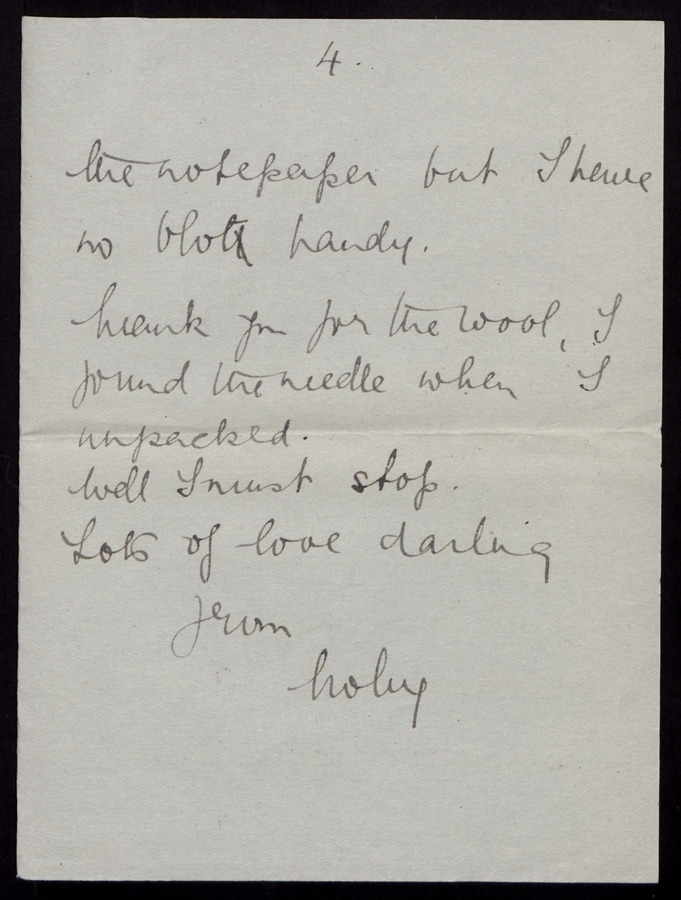 4.
the notepaper but I have
no blott handy.
Thank you for the wool, I
found the needle when I
unpacked.
Well I must stop.
Lots of love darling
from